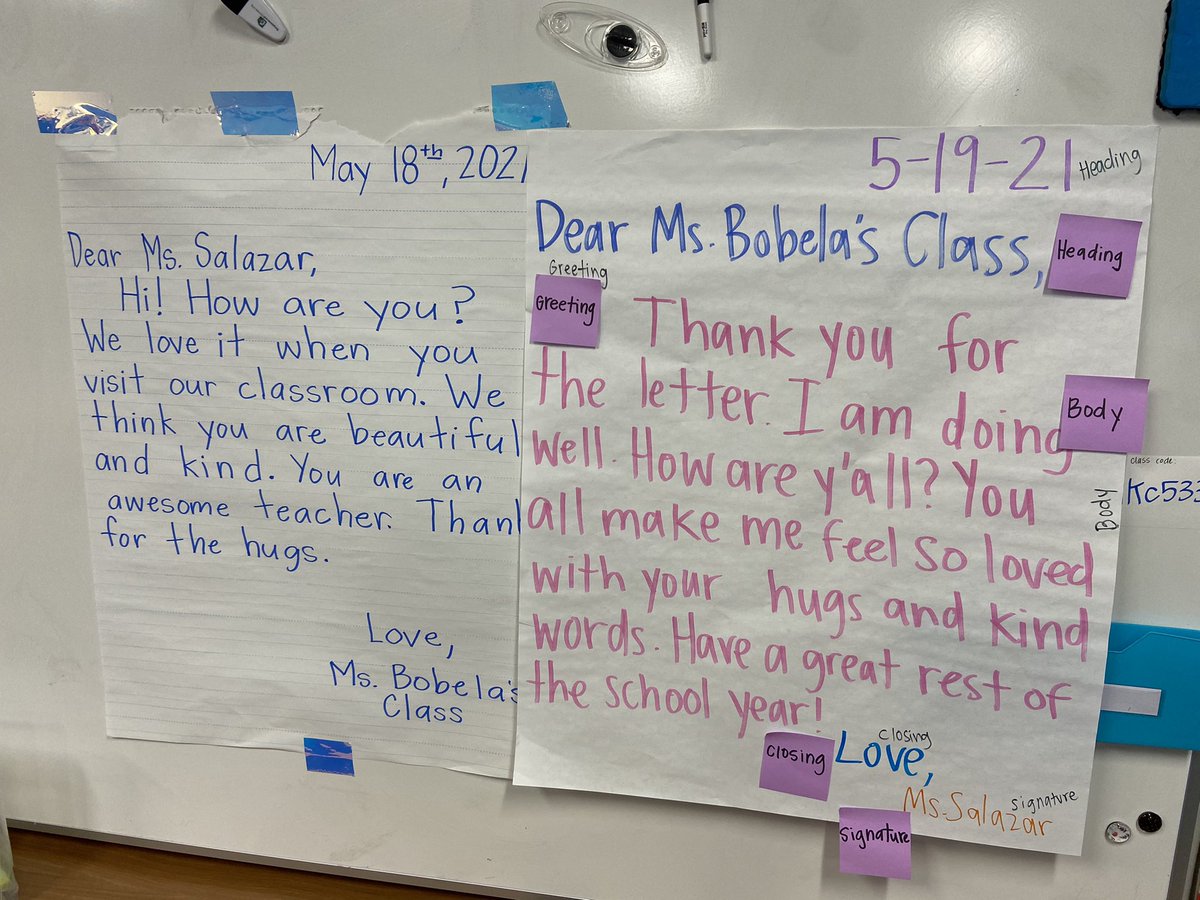 May 18th, 2021
Dear Ms. Salazar,
Hi! How are you?
We love it when you
visit our classroom. We
think you are beautiful
and kind. You are an
awesome teacher. Thank
for the hugs.
Love,
Ms. Bobela's
Class
5-19-21
Heading
Dear Ms. Bobela's Class,
Heading
Greeting
Greeting
Thank you for
the letter. I am doing
well. How are y'all? You
all make me feel so loved
with your hugs and kind
words. Have a great rest of
the school year!
Body
Body
Closing
closing
Love,
Ms. Salazar
signature
Signature
class code:
Kc533